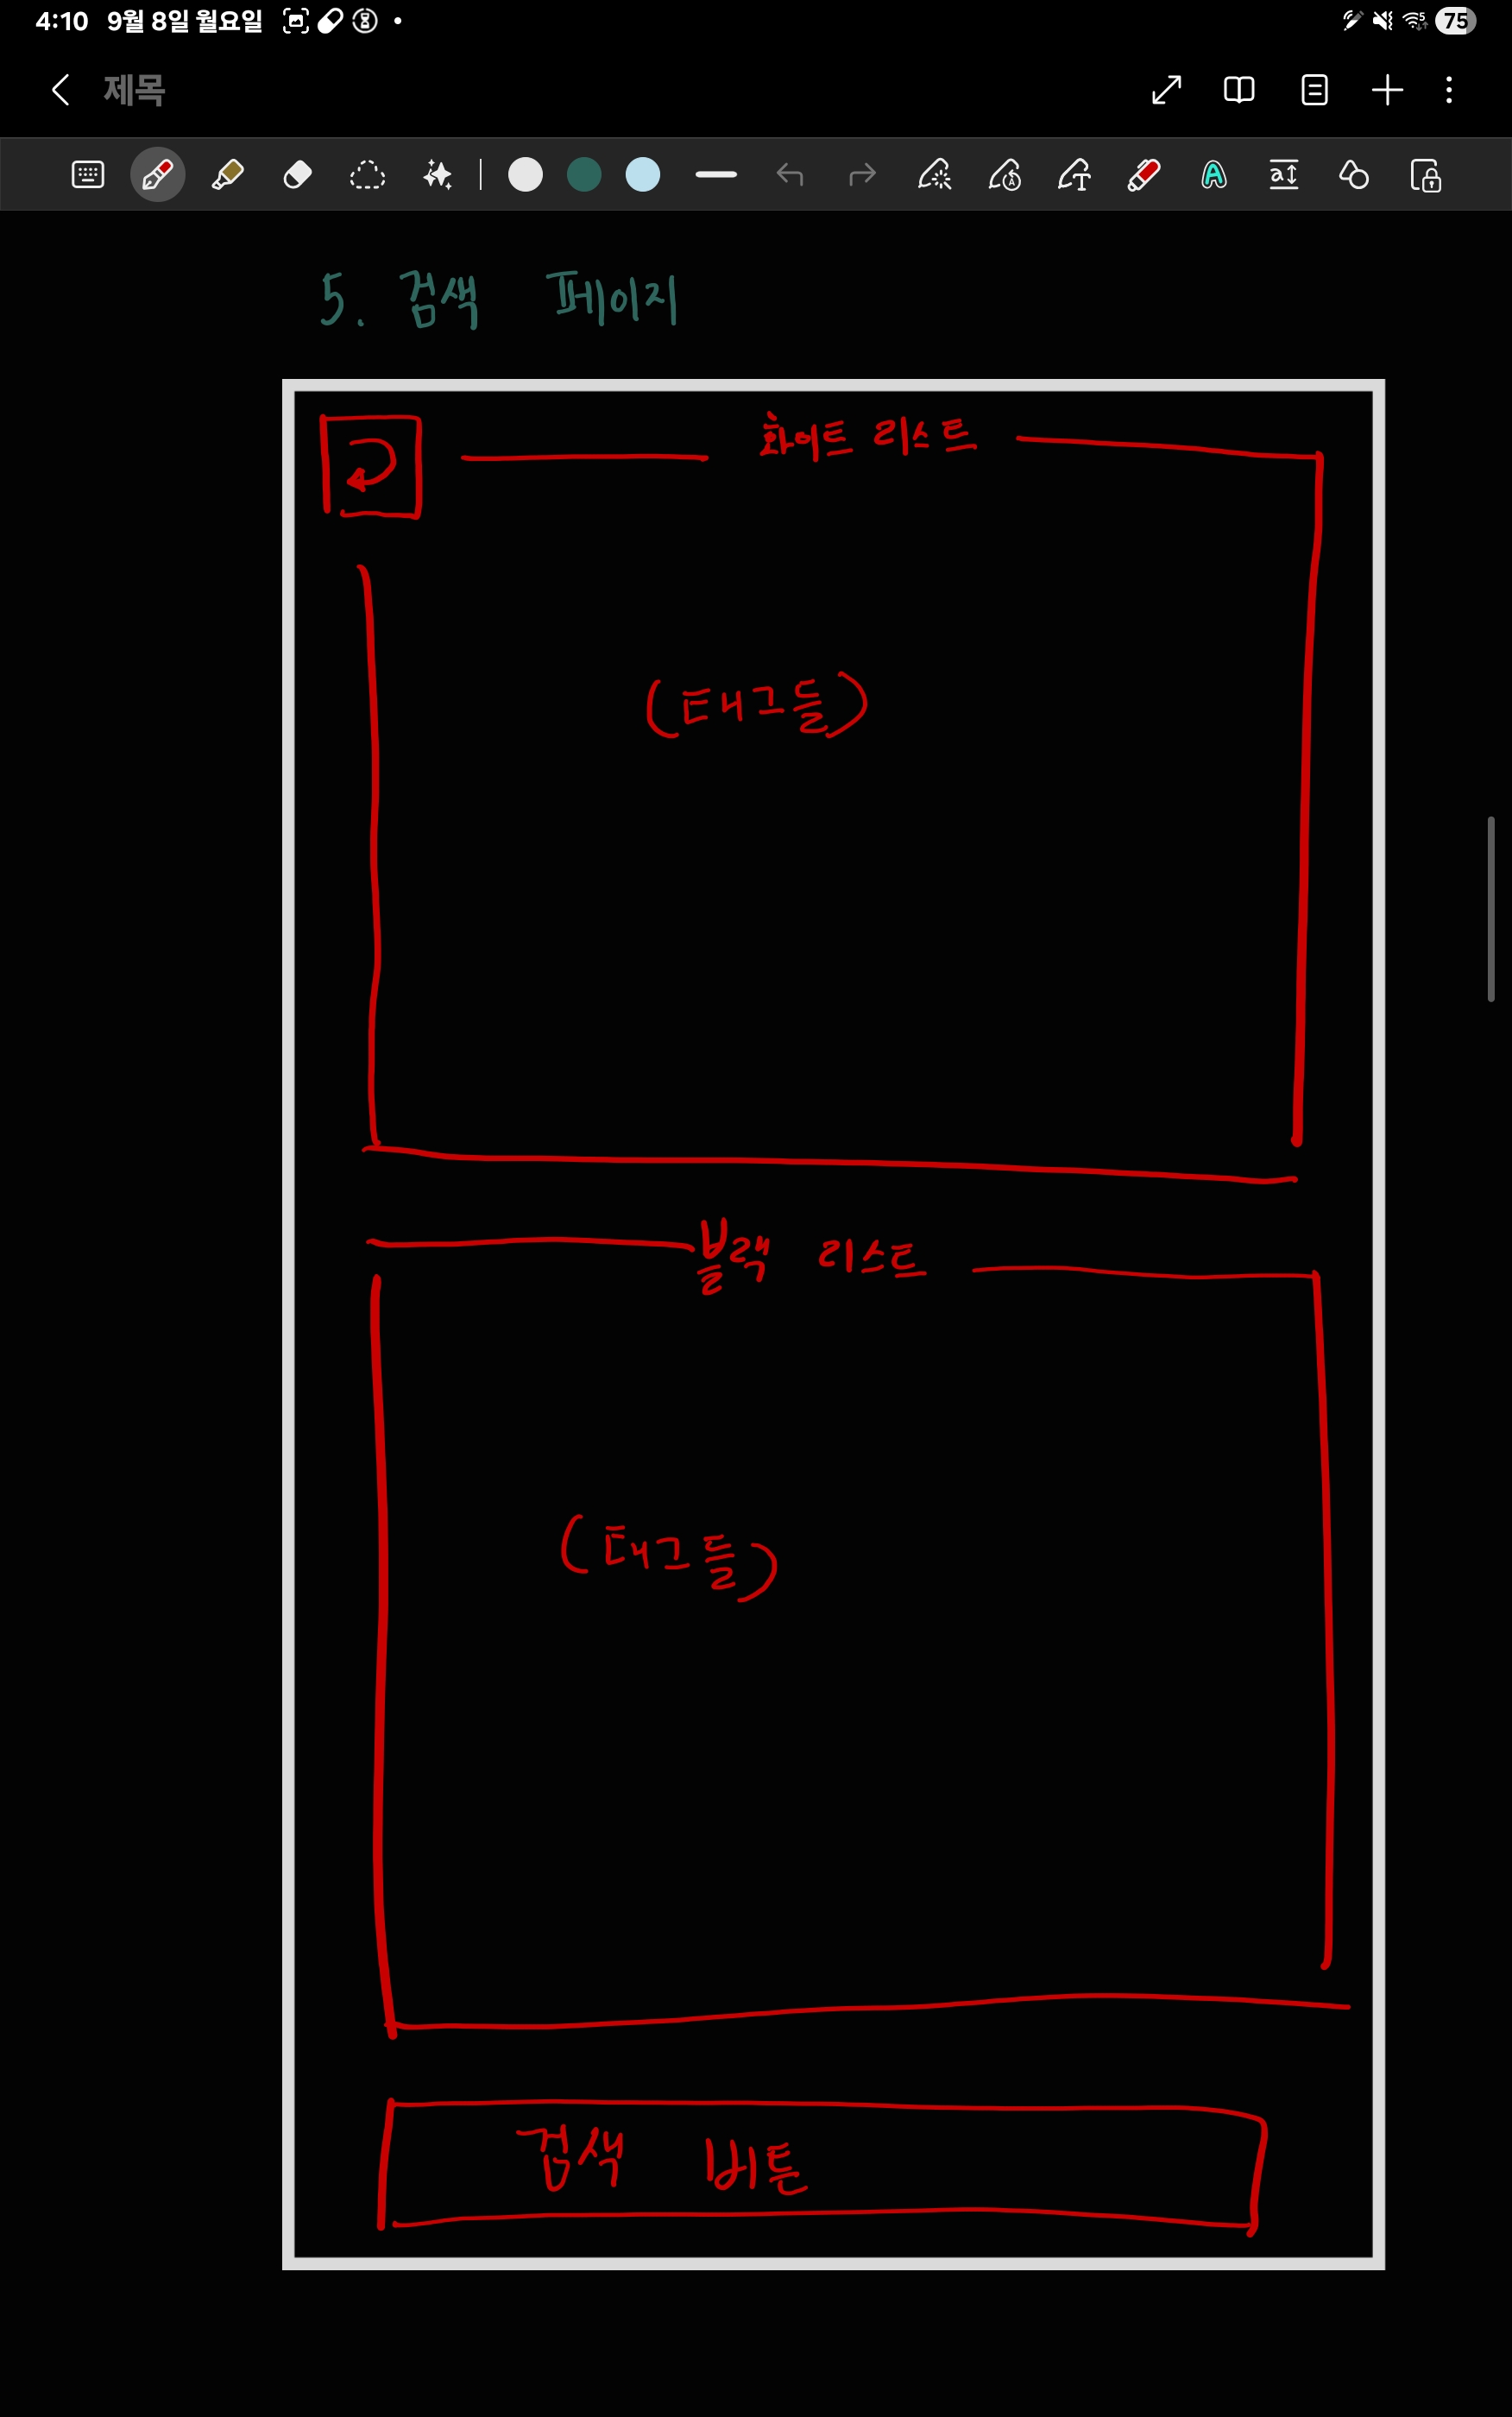 4:10 9월 8일 월요일 75
제목
5. 검색 페이지
화이트 리스트
(태그들)
블랙 리스트
(태그들)
검색 버튼